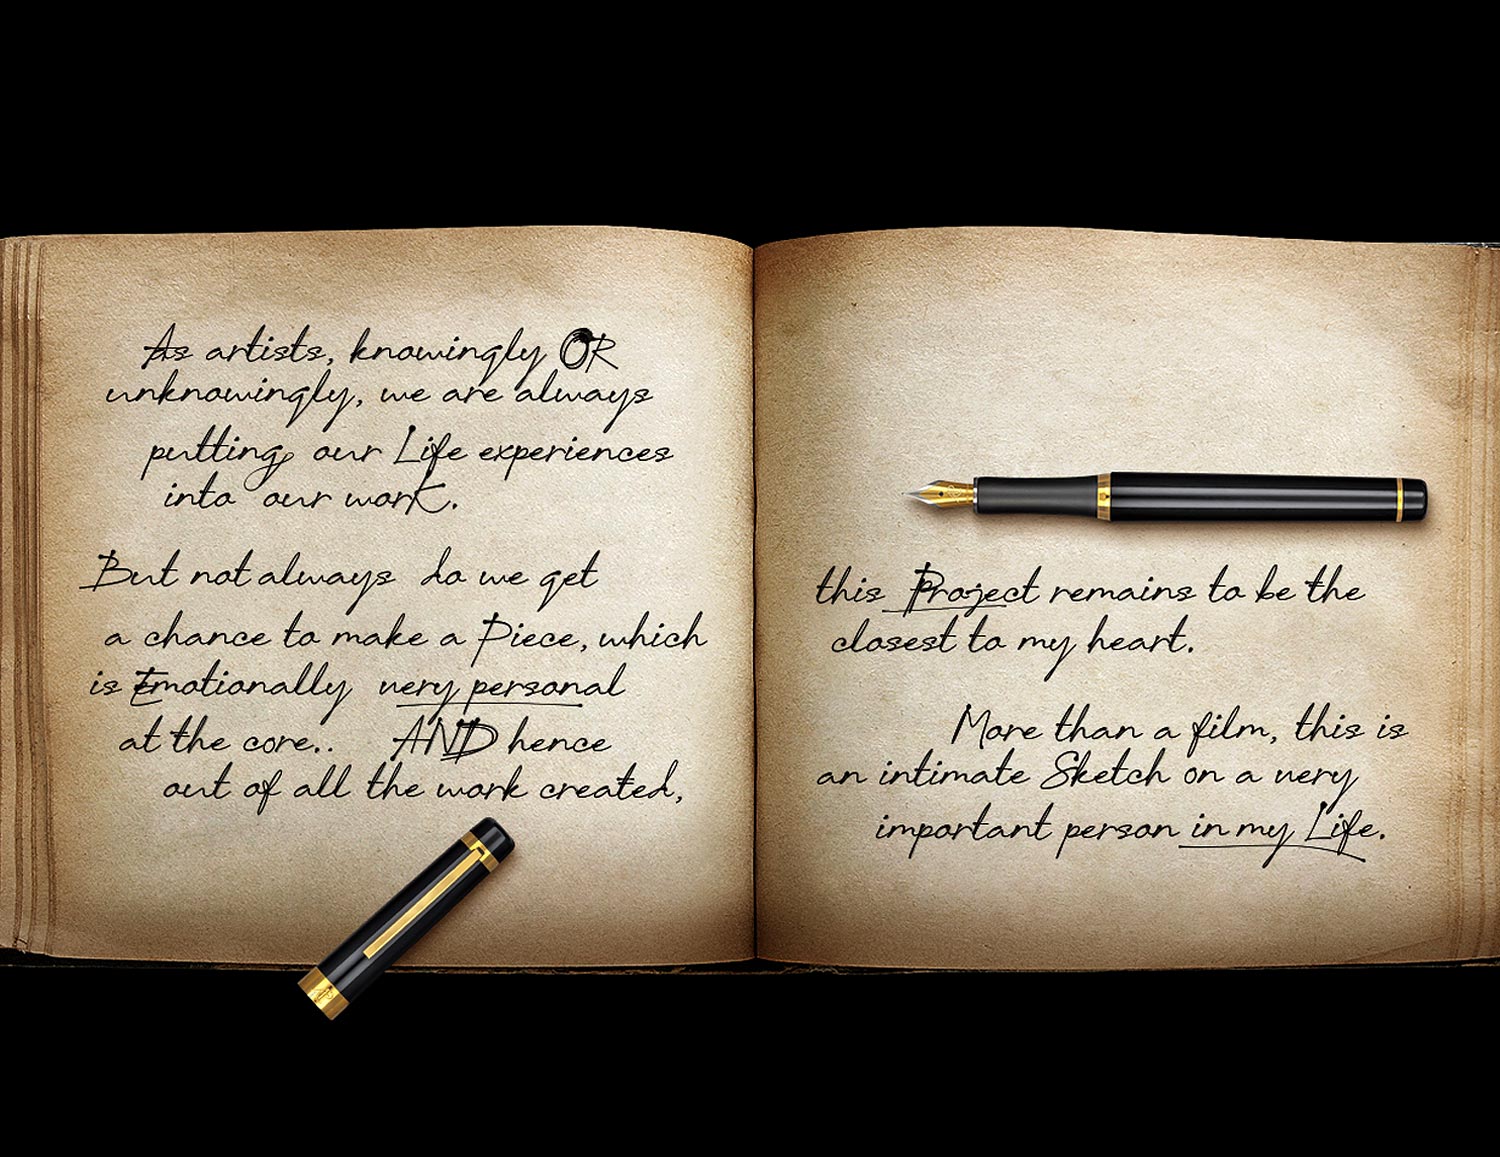 As artists, knowingly OR
unknowingly, we are always
putting our Life experiences
into our worK.
But not always do we get
a chance to make a Piece, which
is Emotionally very personal
at the core.. AND hence
out of all the work created,
this Project remains to be the
closest to my heart.
More than a film, this is
an intimate Sketch on a very
important person in my Life.